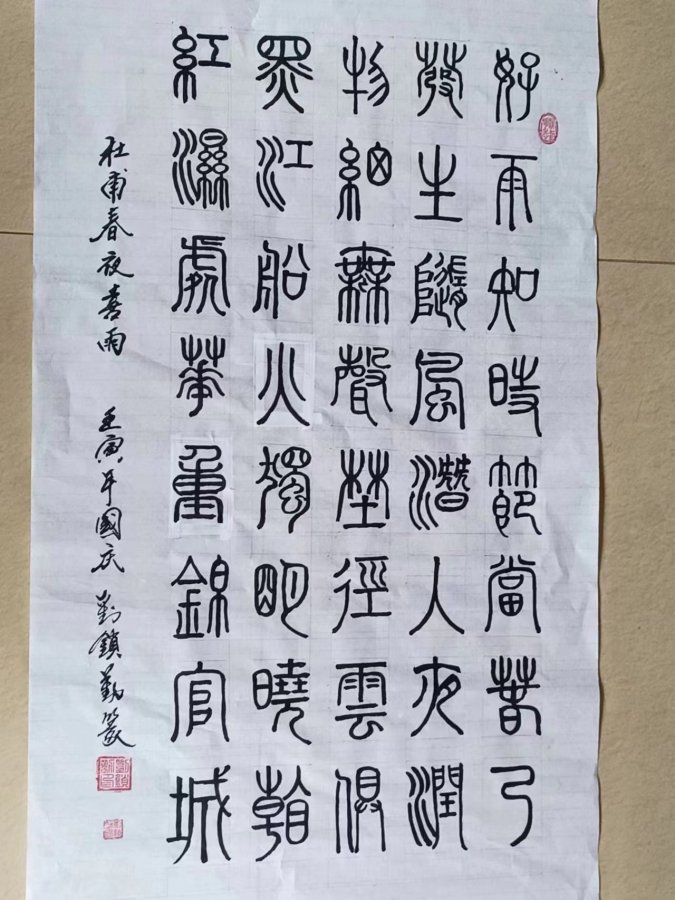 好雨知時節當春乃
發生隨風潛入夜潤
物細無聲埜徑雲俱
黑江船火獨朙曉看
紅濕處華重錦官城
杜甫春夜喜雨 壬寅年國庆 劉鎖勤篆